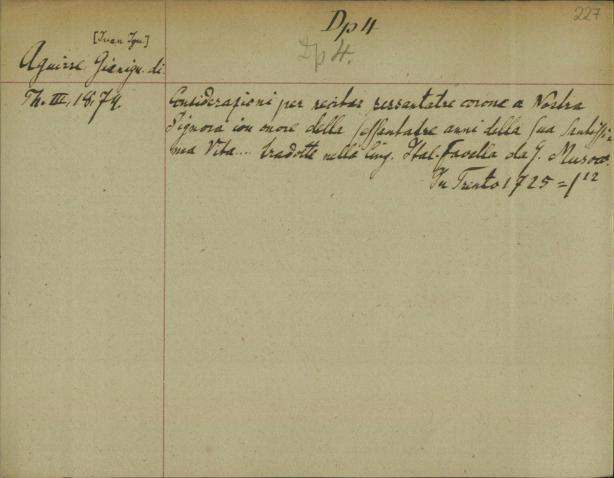 227
Dp 4
Dp 4.
[Juan Ign.]
Aguirre, Gianign. di.
Th. III, 1879.
Considerazioni per recitar sessantatre corone a Nostra
Signora in onore della sessantatre anni della Sua Santissi-
ma Vita... tradotte nella Ling. Ital. favella da G. Musocco.
In Trento 1725 = 1 12